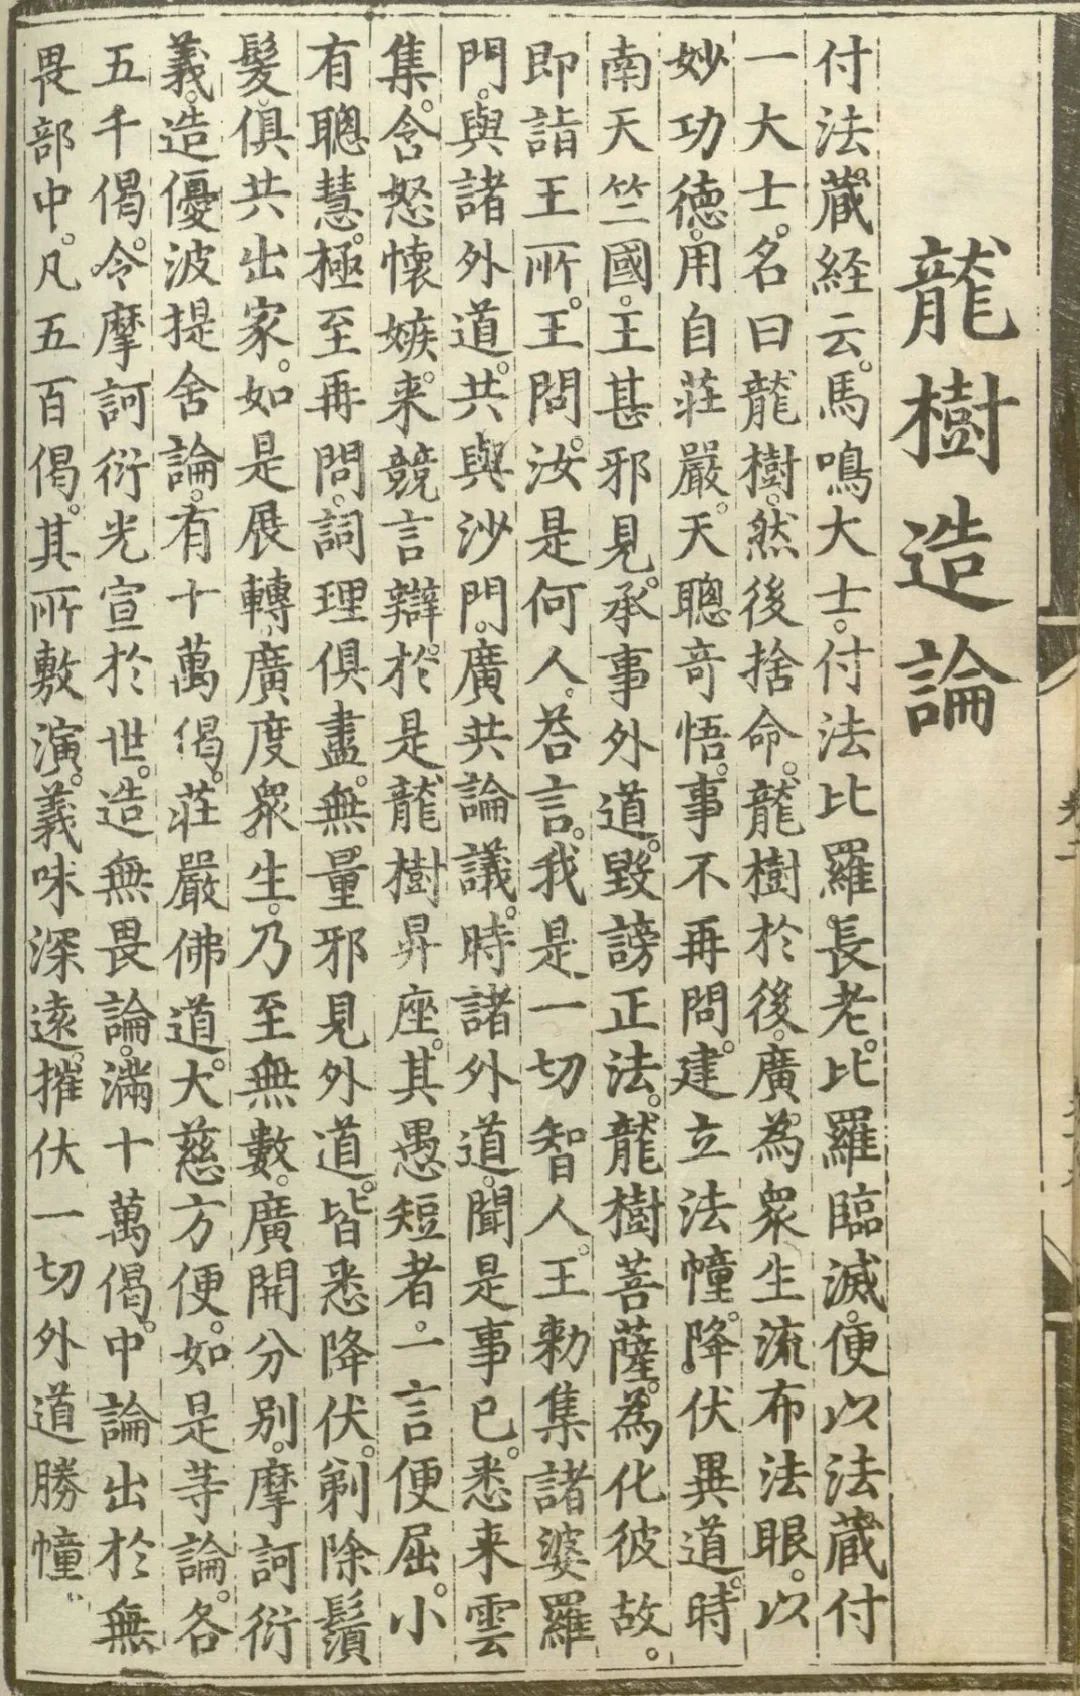 龍樹造論
付法藏経云。馬鳴大士。付法比羅長老。比羅臨滅。便以法藏付
一大士。名曰龍樹。然後捨命。龍樹於後。廣為衆生流布法眼。以
妙功徳。用自莊嚴。天聰竒悟。事不再問。建立法幢。降伏異道。時
南天竺國。王甚邪見。承事外道。毀謗正法。龍樹菩薩。為化彼故。
即詣王所。王問。汝是何人。荅言。我是一切智人。王勑集諸婆羅
門。與諸外道。共與沙門。廣共論議。時諸外道。聞是事已。悉来雲
集。含怒懷嫉。来競言辯。於是龍樹昇座。其愚短者。一言便屈。小
有聰慧。極至再問。詞理俱盡。無量邪見外道。皆悉降伏。剃除鬚
髮。俱共出家。如是展轉。廣度衆生。乃至無數。廣開分別。摩訶衍
義。造優波提舍論。有十萬偈。莊嚴佛道。大慈方便。如是等論。各
五千偈。令摩訶衍光宣於世。造無畏論。滿十萬偈。中論出於無
畏部中。凡五百偈。其所敷演。義味深遠。摧伏一切外道勝幢。